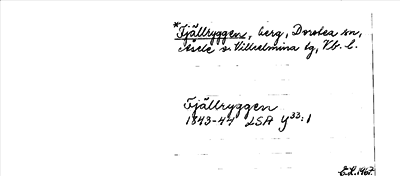 *Fjällryggen, berg, Dorotea sn,
Åsele o. Vilhelmina tg, Vb. l.
Fjällryggen
1843-47 LSA Y33:1
E.H. 1967.